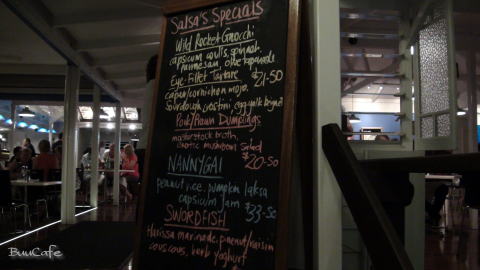 Salsa's Specials
Wild Rocket Gnocchi
capsicum coulis, spinach,
parmesan, olive tapenade
Eye Fillet Tartare $21-50
caper/cornichon mojo,
Sourdough crostini, egg yolk
Pork/Prawn Dumplings
masterstock broth,
exotic mushroom Salad
$20-50
NANNYGAI
peanut rice, pumpkin laksa
capsicum jam $33-50
SWORDFISH
Harissa marinade, pinenut/raisin
couscous, herb yoghurt
BuuCafe